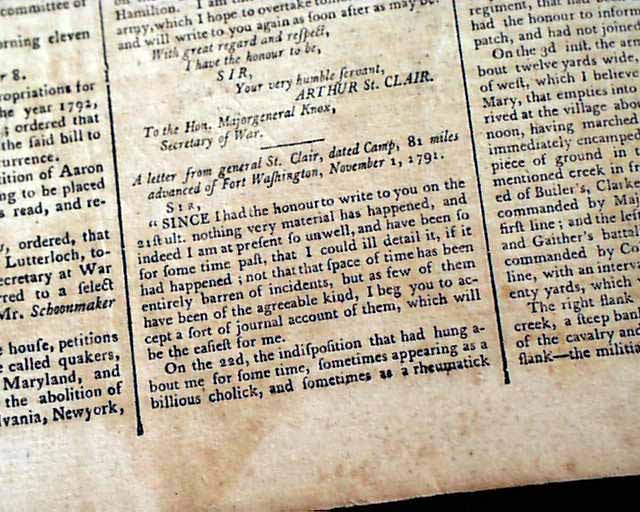 committee of
orning eleven
r 8.
ropriations for
he year 1792,
ordered that
the said bill to
urrence.
tition of Aaron
ng to be placed
s read, and re-
, ordered, that
Lutterloch, to-
ecretary at War
rred to a select
Mr. Schoonmaker
e house, petitions
e called quakers,
Maryland, and
the abolition of
lvania, Newyork,
Hamilton. I am
army, which I hope to overtake
and will write to you again as soon after as may be.
With great regard and reſpect,
I have the honour to be,
SIR,
Your very humble ſervant,
ARTHUR St. CLAIR.
To the Hon. Majorgeneral Knox,
Secretary of War.
A letter from general St. Clair, dated Camp, 81 miles
advanced of Fort Waſhington, November 1, 1791.
SIR,
"SINCE I had the honour to write to you on the
21ſt ult. nothing very material has happened, and
indeed I am at preſent ſo unwell, and have been ſo
for ſome time paſt, that I could ill detail it, if it
had happened; not that that ſpace of time has been
entirely barren of incidents, but as few of them
have been of the agreeable kind, I beg you to ac-
cept a ſort of journal account of them, which will
be the eaſieſt for me.
On the 22d, the indiſpoſition that had hung a-
bout me for ſome time, ſometimes appearing as a
billious cholick, and ſometimes as a rheumatick
regiment, that had
had the honour to inform
patch, and had not joined
On the 3d inſt. the arm
bout twelve yards wide,
of weſt, which I believe
Mary, that empties into
rived at the village abou
noon, having marched
immediately encamped
piece of ground in t
mentioned creek in fr
ed of Butler's, Clarke
commanded by Maj
firſt line; and the lef
and Gaither's battal
commanded by Co
line, with an interv
enty yards, which
The right flank
creek, a ſteep bank
of the cavalry and
flank—the militia